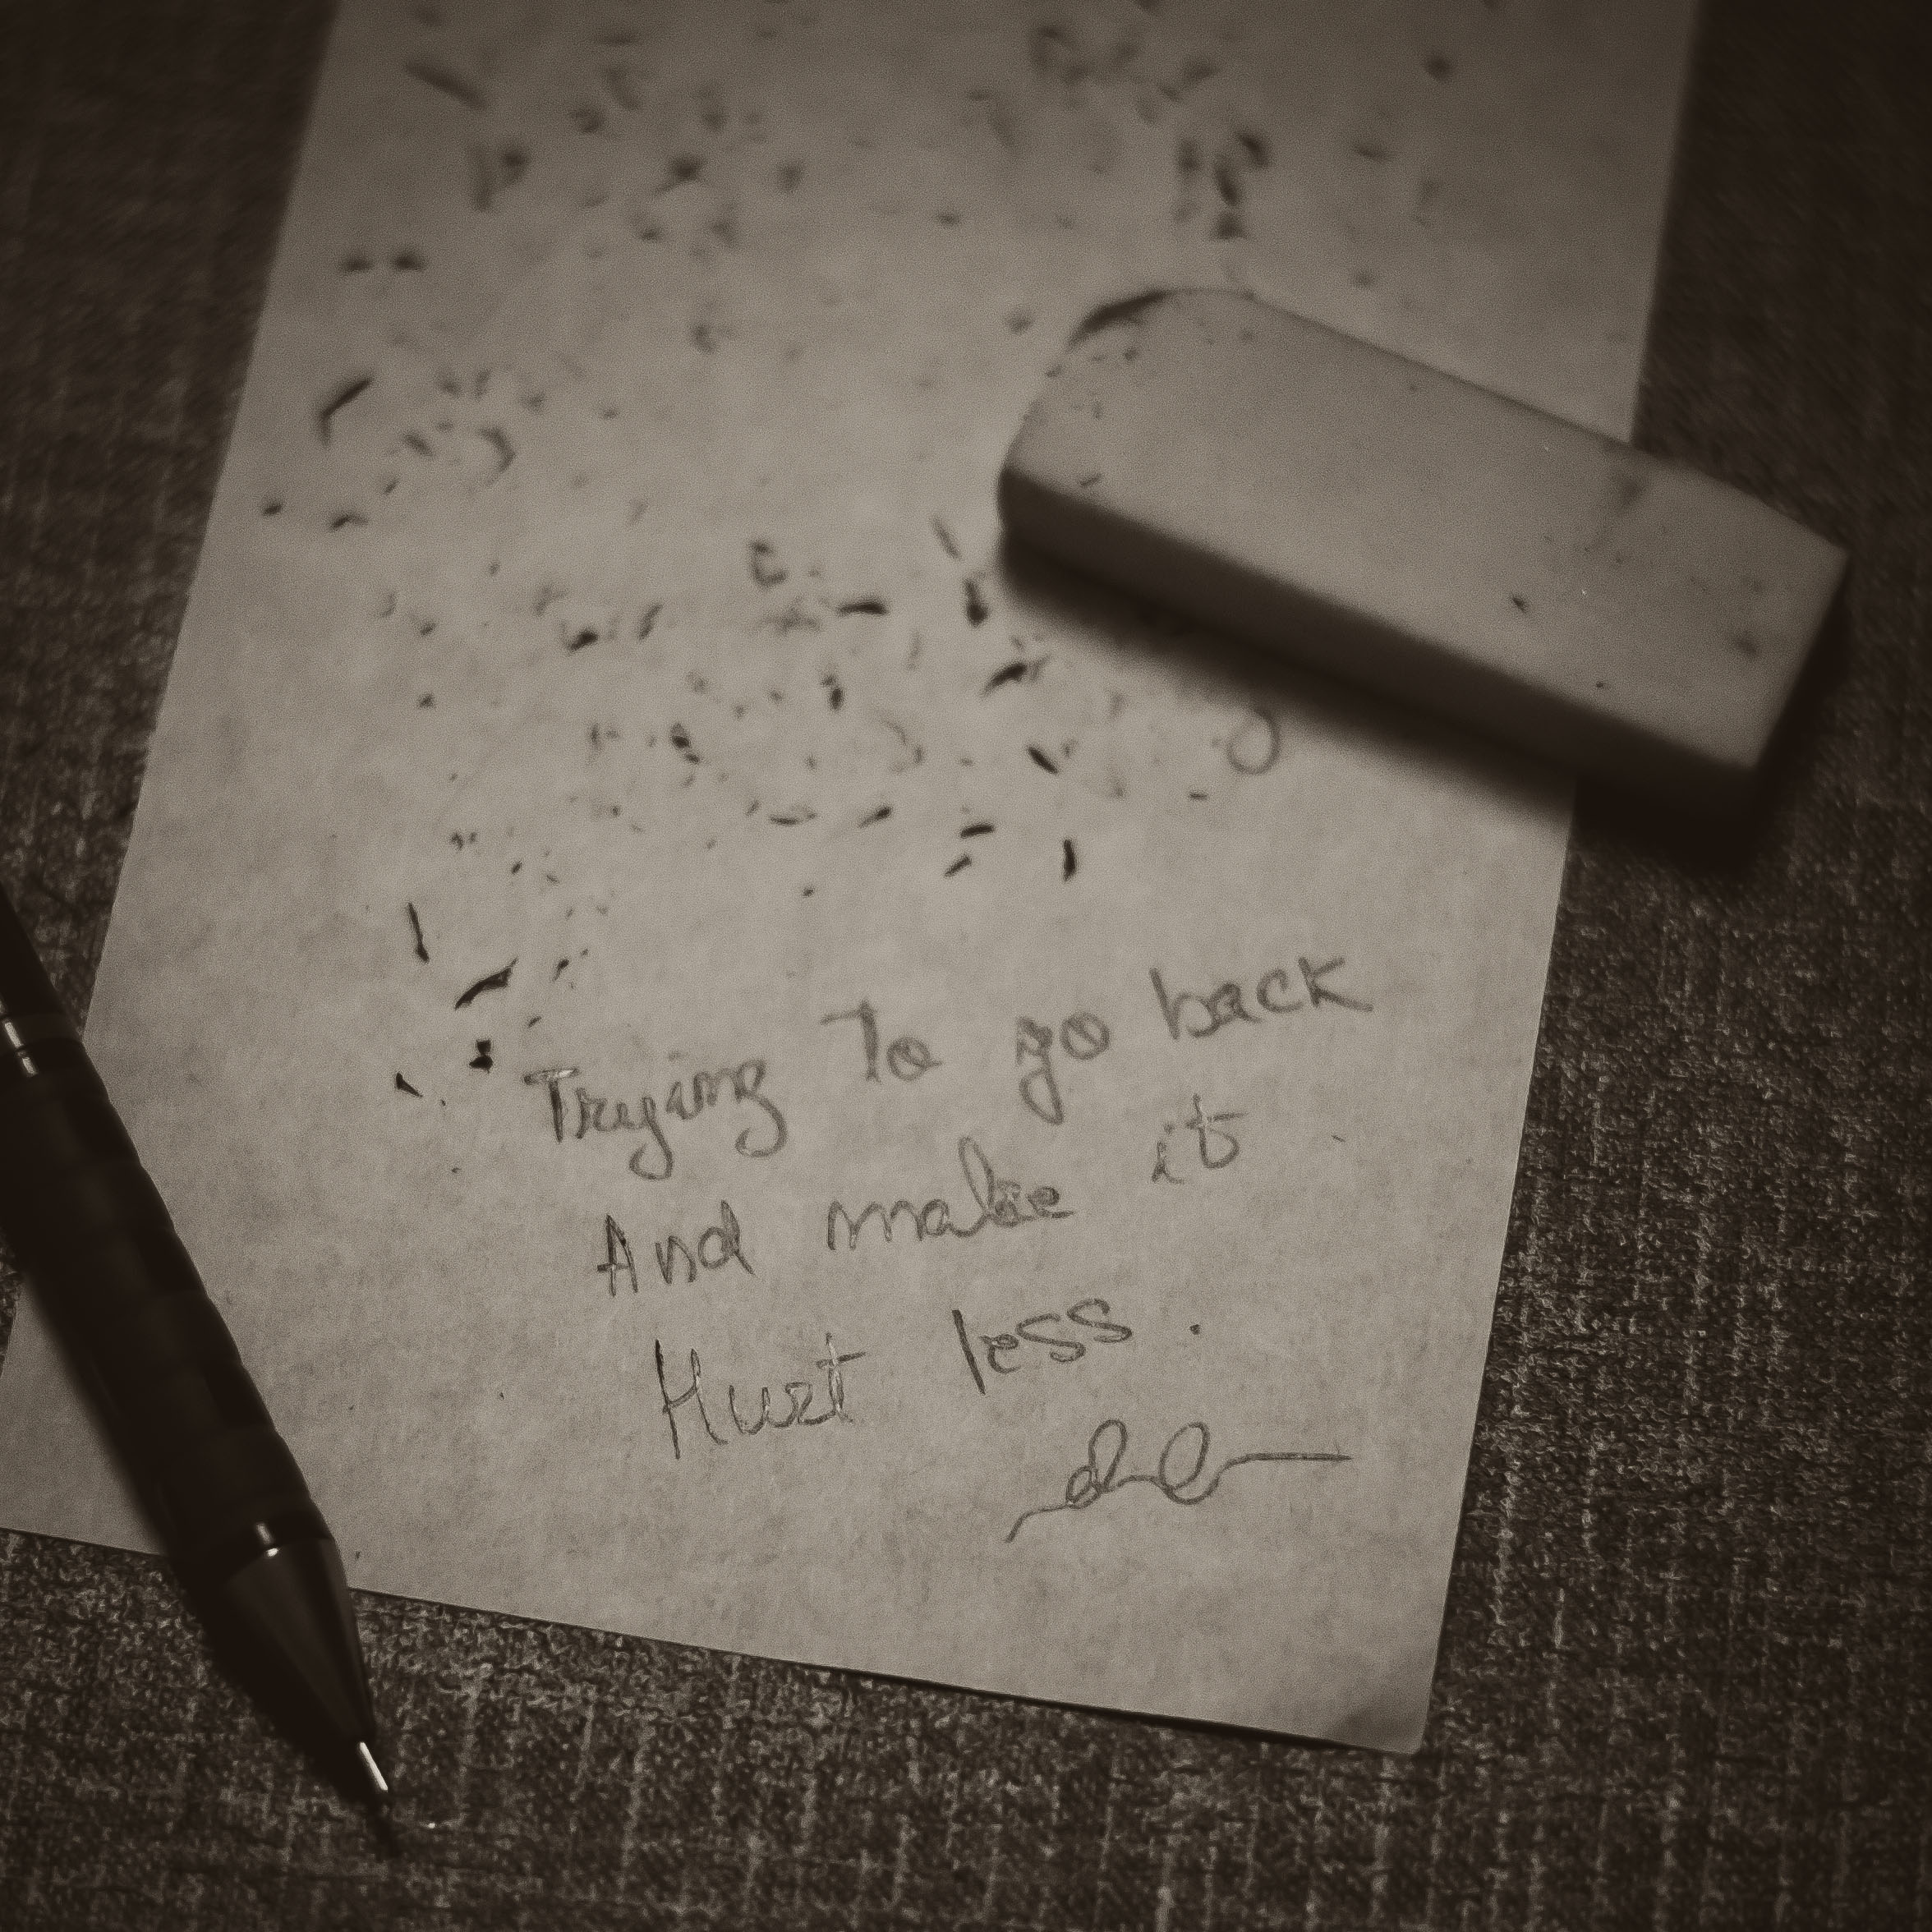 Trying To go back
And make it
Hurt less.